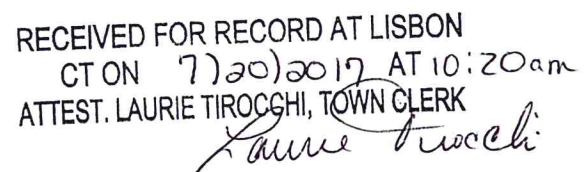 RECEIVED FOR RECORD AT LISBON
CT ON 7/20/2017 AT 10:20am
ATTEST. LAURIE TIROCCHI, TOWN CLERK
Laurie Tirocchi